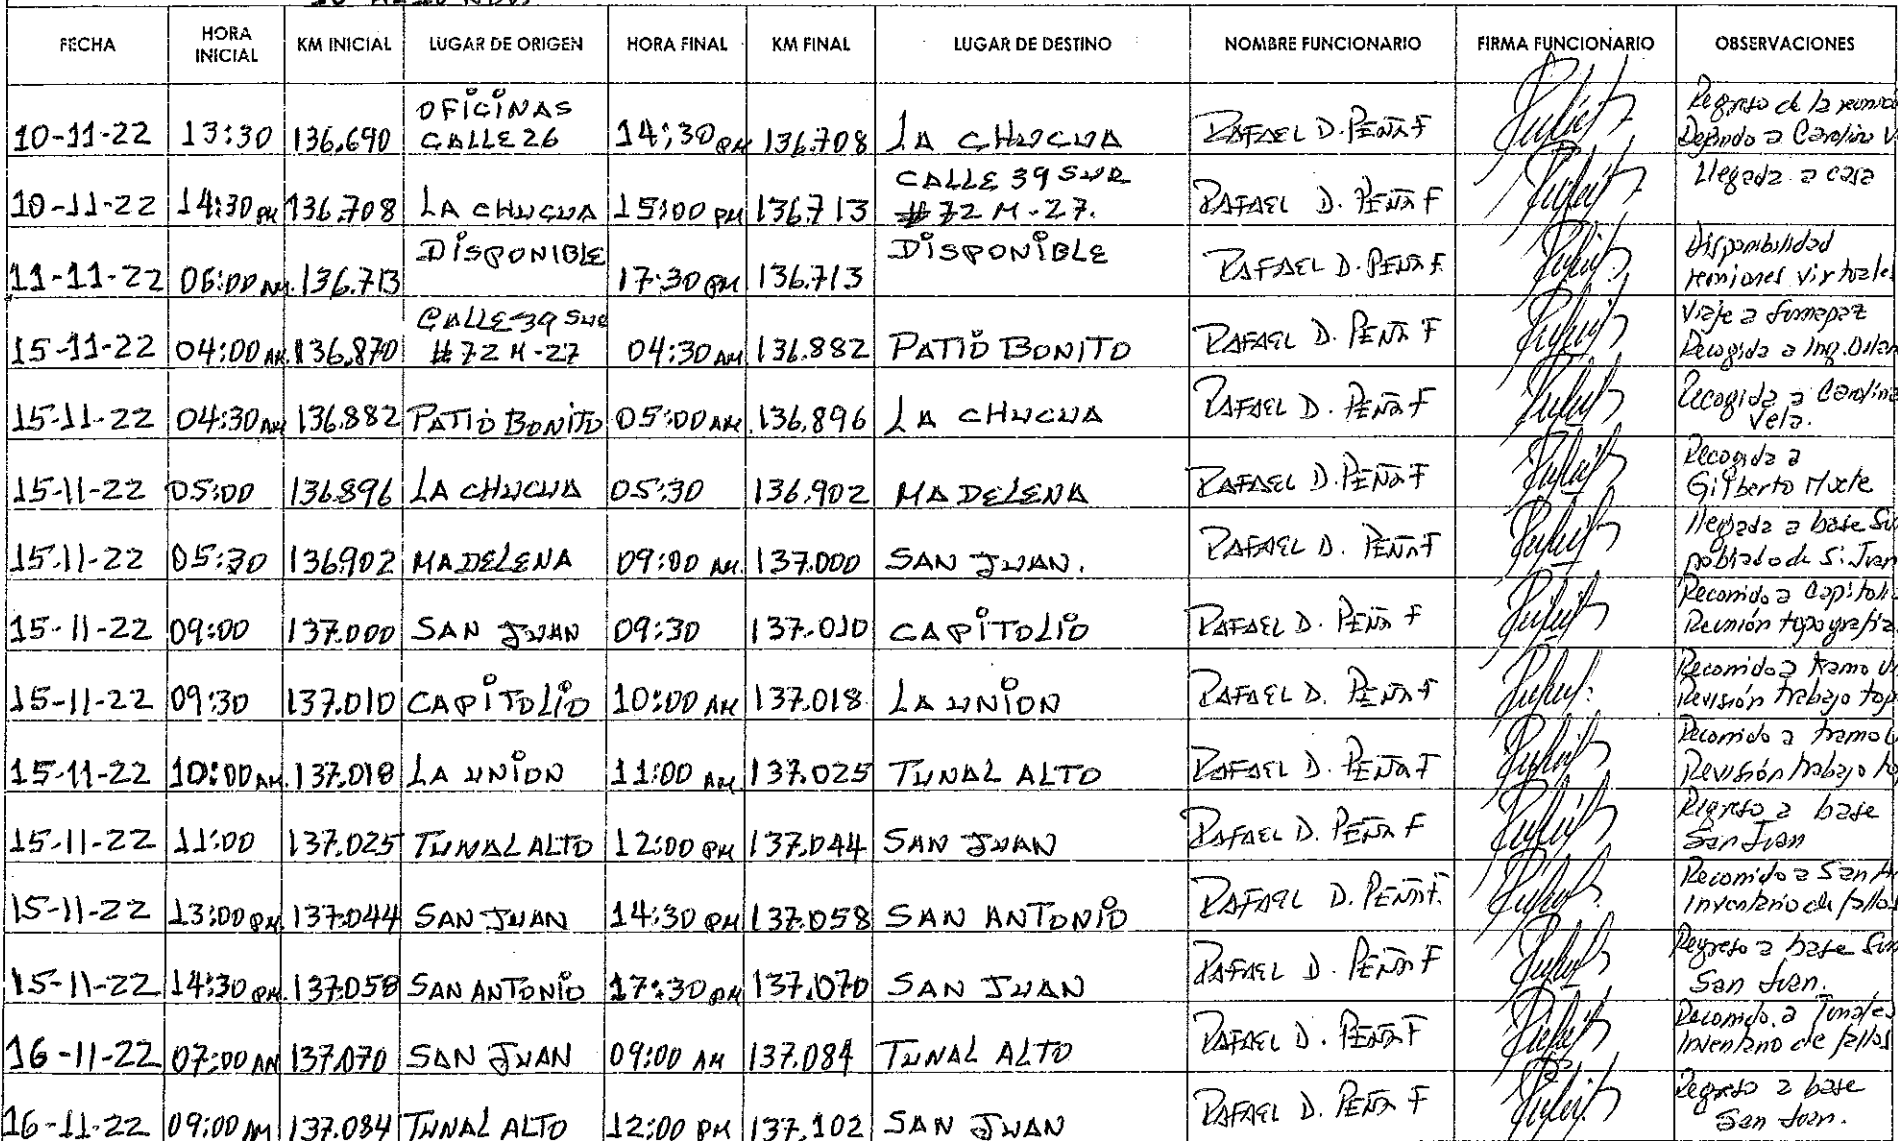 FECHA HORA INICIAL KM INICIAL LUGAR DE ORIGEN HORA FINAL KM FINAL LUGAR DE DESTINO NOMBRE FUNCIONARIO FIRMA FUNCIONARIO OBSERVACIONES
10-11-22 13:30 136.690 OFICINAS CALLE 26 14:30 PM 136.708 LA CHUCUA RAFAEL D. PEÑA F Regreso de la reunió Dejando a Carolina V
10-11-22 14:30 PM 136.708 LA CHUCUA 15:00 PM 136.713 CALLE 39 SUR #72 M-27. RAFAEL D. PEÑA F Llegada a casa
11-11-22 06:00 AM 136.713 DISPONIBLE 17:30 PM 136.713 DISPONIBLE RAFAEL D. PEÑA F. Disponibilidad reuniones virtuales
15-11-22 04:00 AM 136.870 CALLE 39 SUR #72 M-27 04:30 AM 136.882 PATIO BONITO RAFAEL D. PEÑA F Viaje a Sumapaz Recogida a Ing.
15-11-22 04:30 AM 136.882 PATIO BONITO 05:00 AM 136.896 LA CHUCUA RAFAEL D. PEÑA F Recogida a Carolina Vela.
15-11-22 05:00 136.896 LA CHUCUA 05:30 136.902 MADELENA RAFAEL D. PEÑA F Recogida a Gilberto
15.11-22 05:30 136902 MADELENA 09:00 AM. 137.000 SAN JUAN. RAFAEL D. PEÑA F llegada a base Su poblado de S. Juan
15-11-22 09:00 137.000 SAN JUAN 09:30 137.010 CAPITOLIO RAFAEL D. PEÑA F Recorrido a Capitoli Reunión topografía
15-11-22 09:30 137.010 CAPITOLIO 10:00 AM 137.018 LA UNION RAFAEL D. PEÑA F Recorrido a tramo U Revisión trabajo top
15-11-22 10:00 AM. 137.018 LA UNION 11:00 AM 137.025 TUNAL ALTO RAFAEL D. PEÑA F Recorrido a tramo Revisión trabajo to
15-11-22 11:00 137.025 TUNAL ALTO 12:00 PM 137.044 SAN JUAN RAFAEL D. PEÑA F Regreso a base San Juan
15-11-22 13:00 PM. 137.044 SAN JUAN 14:30 PM 137.058 SAN ANTONIO RAFAEL D. PEÑA F. Recorrido a San A Inventario de fallos
15-11-22 14:30 PM. 137.058 SAN ANTONIO 17:30 PM 137.070 SAN JUAN RAFAEL D. PEÑA F Regreso a base Su San Juan.
16-11-22 07:00 AM 137.070 SAN JUAN 09:00 AM 137.084 TUNAL ALTO RAFAEL D. PEÑA F Recorrido a Tunales Inventario de fallos
16-11-22 09:00 AM 137.084 TUNAL ALTO 12:00 PM 137.102 SAN JUAN RAFAEL D. PEÑA F Regreso a base San Juan.